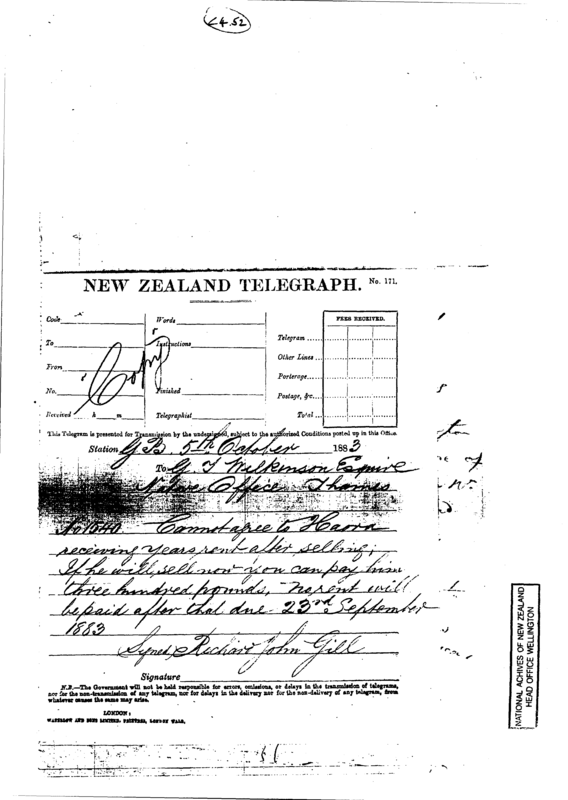 4.52
NEW ZEALAND TELEGRAPH. No. 171.
Code
Words
FEES RECEIVED.
To
Instructions
Telegram
Other Lines
From
Copy
Porterage
No.
Finished
Postage, &c.
Received h m
Telegraphist
Total
This Telegram is presented for Transmission by the undersigned, subject to the authorized Conditions posted up in this Office.
Station G B, 5th October 1883
To G T Wilkinson Esquire
Native Office Thames
No 1540 Cannot agree to Haora
receiving years rent after selling;
If he will sell now you can pay him
three hundred pounds, no rent will
be paid after that due 23rd September
1883
Signed Richard John Gill
Signature
N.B.—The Government will not be held responsible for errors, omissions, or delays in the transmission of telegrams,
nor for the non-transmission of any telegram, nor for delays in the delivery nor for the non-delivery of any telegram, from
whatever causes the same may arise.
LONDON:
WATERLOW AND SONS LIMITED, PRINTERS, LONDON WALL.
NATIONAL ACHIVES OF NEW ZEALAND
HEAD OFFICE WELLINGTON